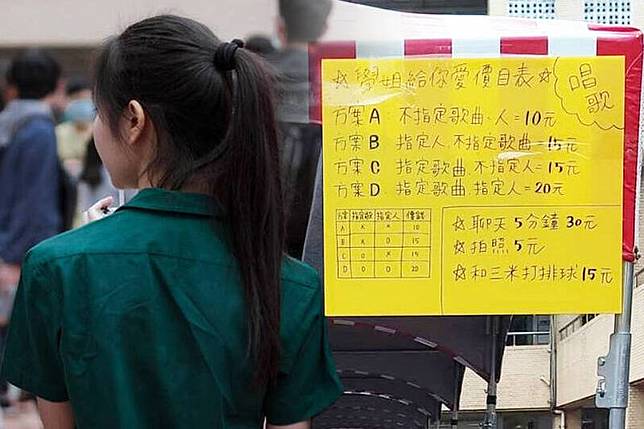 ☆學姐給你愛價目表☆
唱歌
方案A：不指定歌曲、人=10元
方案B 指定人,不指定歌曲=15元
方案C 指定歌曲,不指定人=15元
方案D 指定歌曲,指定人=20元
方案 指定歌 指定人 價錢
A X X 10
B X O 15
C O X 15
D O O 20
☆聊天5分鐘30元
☆拍照5元
☆和三米打排球15元